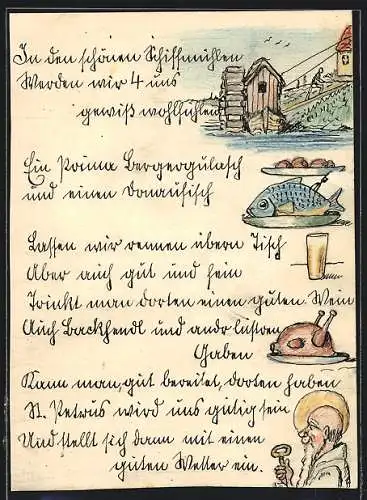 In den schönen Schiffmühlen
Werden wir 4 uns
gewiß wohlfühlen
Ein Prima Bergergulasch
und einen Donaufisch
Lassen wir rennen übern Tisch
Aber auch gut und fein
Trinkt man dorten einen guten Wein
Auch Backhendl und andr
Gaben
Kann man, gut bereitet, dorten haben
St. Petrus wird uns gütig sein
Und stellt sich dann mit einen
guten Wetter ein.